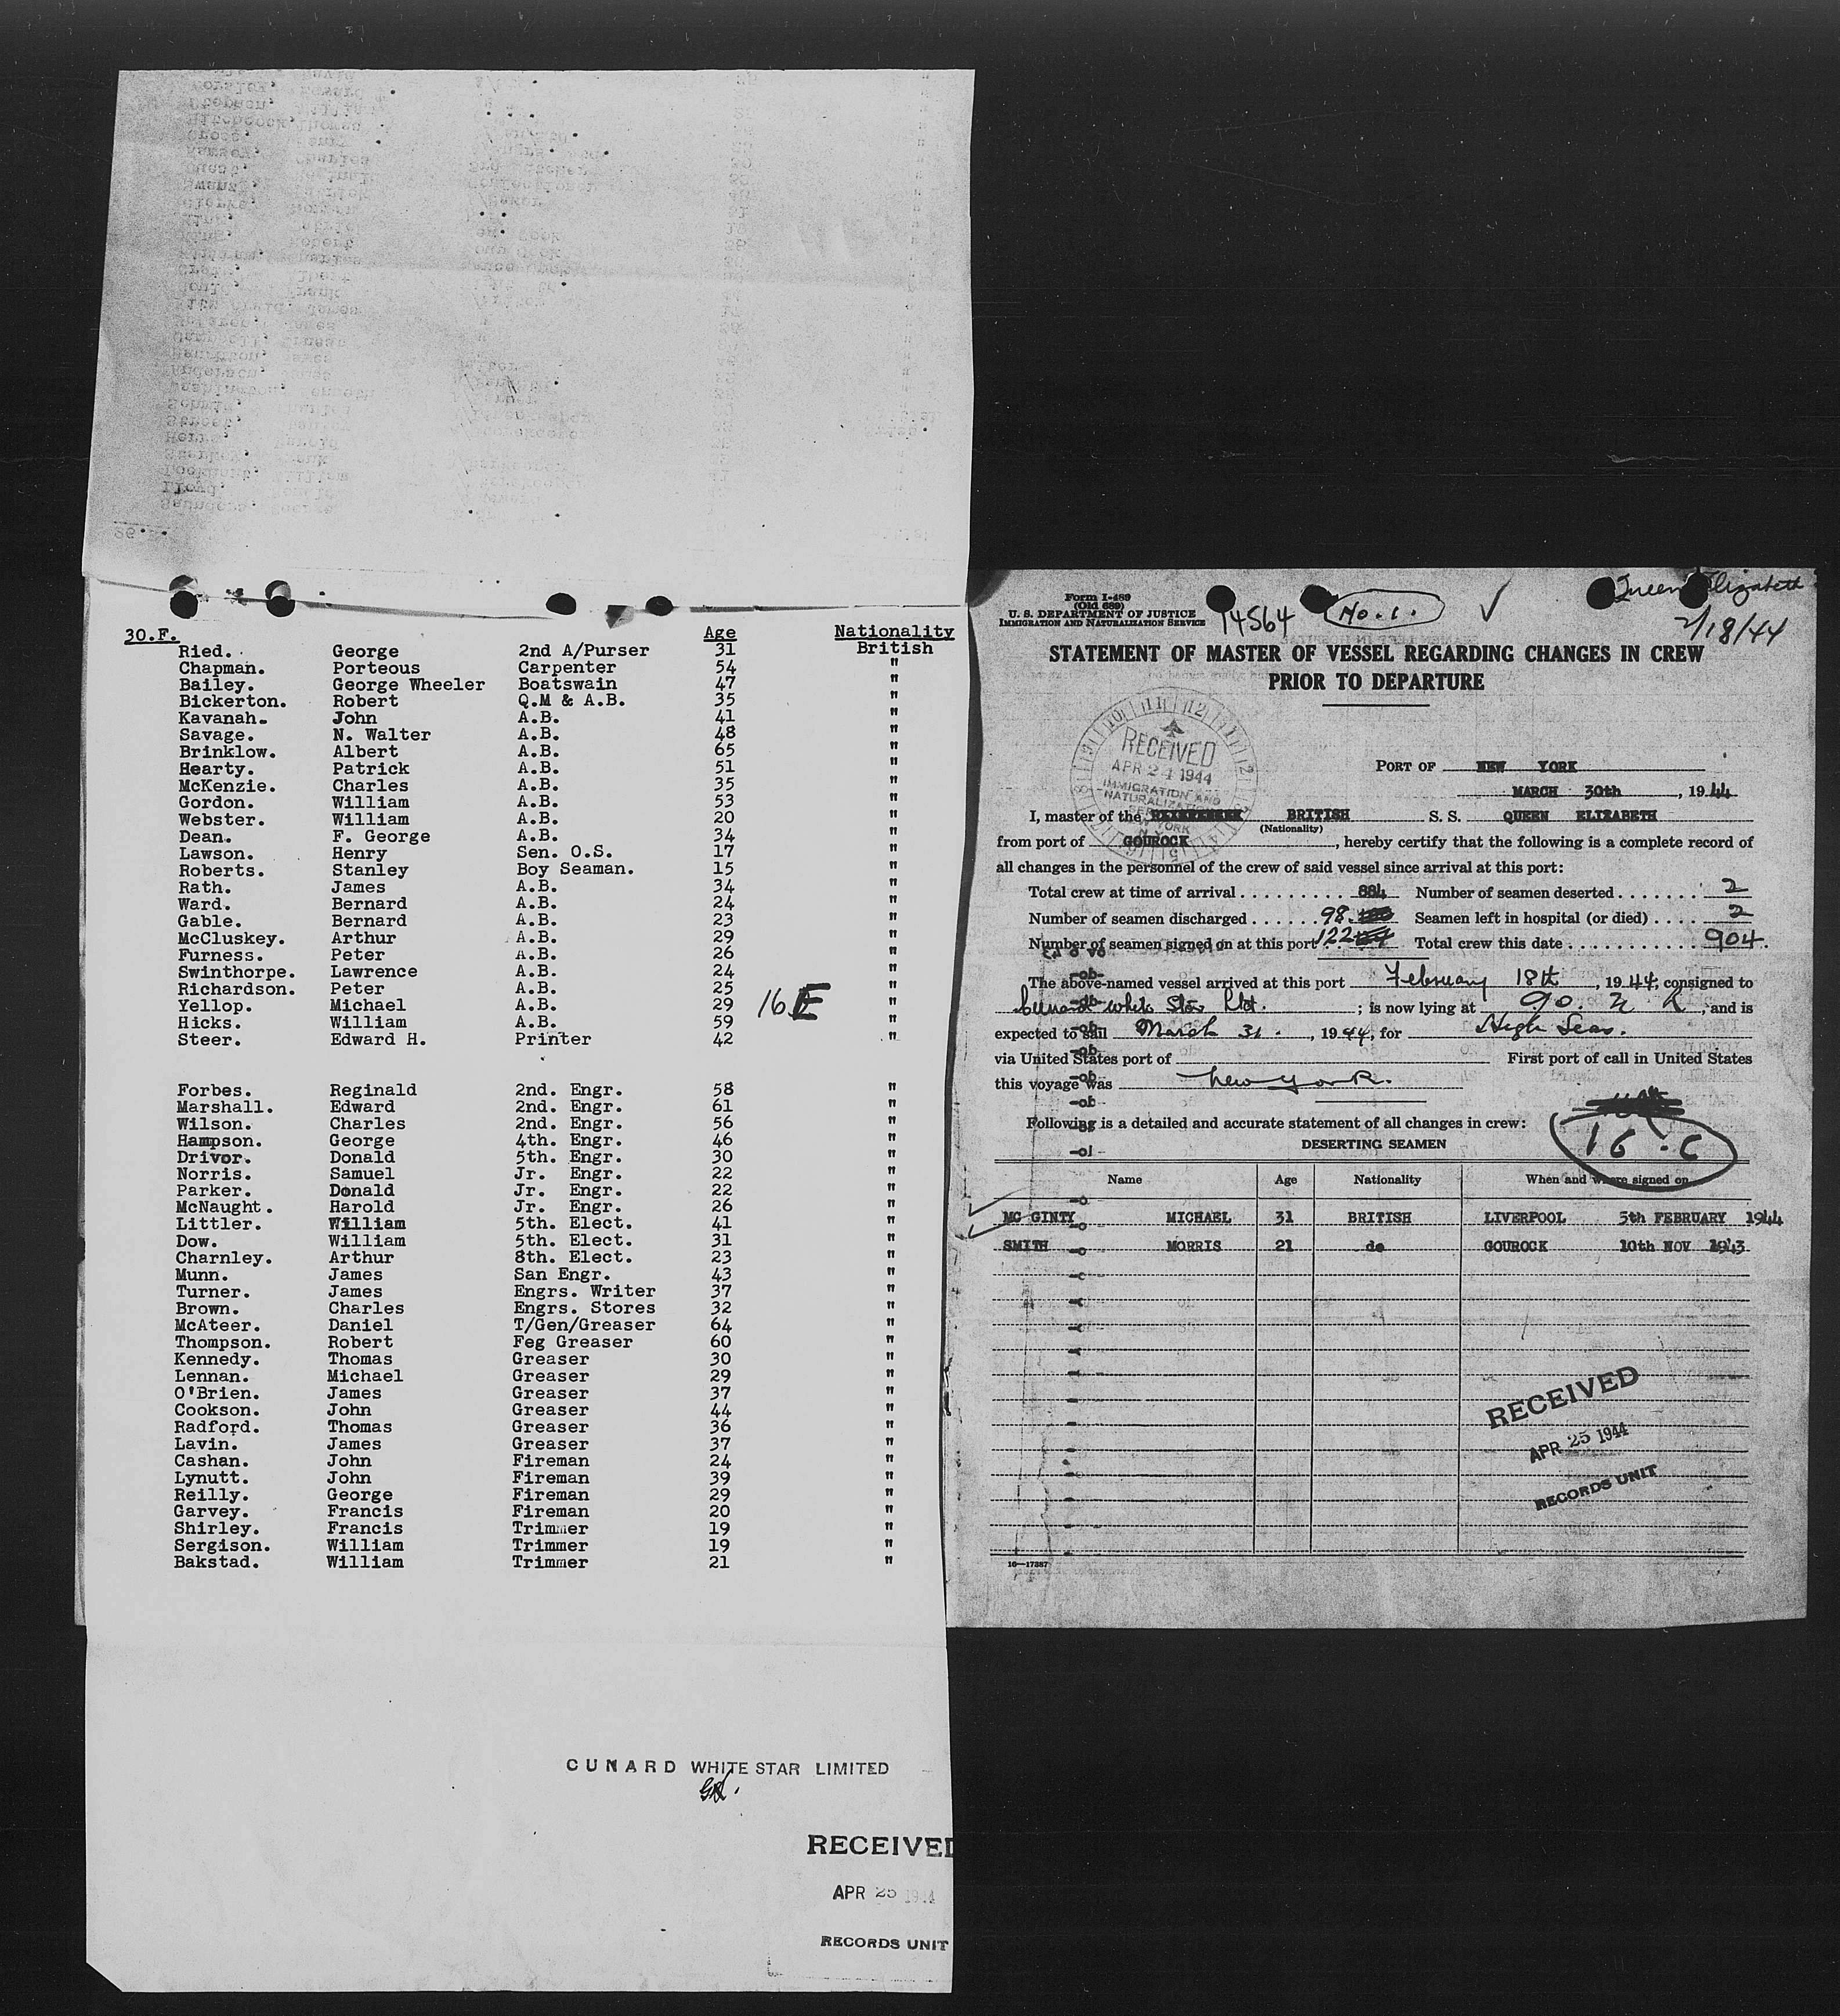 30.F. Age Nationality
Ried. George 2nd A/Purser 31 British
Chapman. Porteous Carpenter 54 "
Bailey. George Wheeler Boatswain 47 "
Bickerton. Robert Q.M & A.B. 35 "
Kavanah. John A.B. 41 "
Savage. N. Walter A.B. 48 "
Brinklow. Albert A.B. 65 "
Hearty. Patrick A.B. 51 "
McKenzie. Charles A.B. 35 "
Gordon. William A.B. 53 "
Webster. William A.B. 20 "
Dean. F. George A.B. 34 "
Lawson. Henry Sen. O.S. 17 "
Roberts. Stanley Boy Seaman. 15 "
Rath. James A.B. 34 "
Ward. Bernard A.B. 24 "
Gable. Bernard A.B. 23 "
McCluskey. Arthur A.B. 29 "
Furness. Peter A.B. 26 "
Swinthorpe. Lawrence A.B. 24 "
Richardson. Peter A.B. 25 "
Yellop. Michael A.B. 29 16 E "
Hicks. William A.B. 59 "
Steer. Edward H. Printer 42 "
Forbes. Reginald 2nd. Engr. 58 "
Marshall. Edward 2nd. Engr. 61 "
Wilson. Charles 2nd. Engr. 56 "
Hampson. George 4th. Engr. 46 "
Drivor. Donald 5th. Engr. 30 "
Norris. Samuel Jr. Engr. 22 "
Parker. Donald Jr. Engr. 22 "
McNaught. Harold Jr. Engr. 26 "
Littler. William 5th. Elect. 41 "
Dow. William 5th. Elect. 31 "
Charnley. Arthur 8th. Elect. 23 "
Munn. James San Engr. 43 "
Turner. James Engrs. Writer 37 "
Brown. Charles Engrs. Stores 32 "
McAteer. Daniel T/Gen/Greaser 64 "
Thompson. Robert Feg Greaser 60 "
Kennedy. Thomas Greaser 30 "
Lennan. Michael Greaser 29 "
O'Brien. James Greaser 37 "
Cookson. John Greaser 44 "
Radford. Thomas Greaser 36 "
Lavin. James Greaser 37 "
Cashan. John Fireman 24 "
Lynutt. John Fireman 39 "
Reilly. George Fireman 29 "
Garvey. Francis Fireman 20 "
Shirley. Francis Trimmer 19 "
Sergison. William Trimmer 19 "
Bakstad. William Trimmer 21 "
CUNARD WHITE STAR LIMITED
RECEIVED
APR 25 1944
RECORDS UNIT
Form I-489
(Old 689)
U. S. DEPARTMENT OF JUSTICE
IMMIGRATION AND NATURALIZATION SERVICE
14564 No. 1. Queen Elizabeth
2/18/44
STATEMENT OF MASTER OF VESSEL REGARDING CHANGES IN CREW
PRIOR TO DEPARTURE
RECEIVED
APR 24 1944
IMMIGRATION AND
NATURALIZATION
PORT OF NEW YORK
MARCH 30th, 1944
I, master of the BRITISH S. S. QUEEN ELIZABETH
(Nationality)
from port of GOUROCK, hereby certify that the following is a complete record of
all changes in the personnel of the crew of said vessel since arrival at this port:
Total crew at time of arrival 884 Number of seamen deserted 2
Number of seamen discharged 98 Seamen left in hospital (or died) 2
Number of seamen signed on at this port 122 Total crew this date 904.
The above-named vessel arrived at this port February 18th, 1944, consigned to
Cunard White Star Ltd.; is now lying at 90. N R, and is
expected to sail March 31., 1944, for High Seas.
via United States port of First port of call in United States
this voyage was New York.
Following is a detailed and accurate statement of all changes in crew:
16.C
DESERTING SEAMEN
Name Age Nationality When and where signed on
MC GINTY MICHAEL 31 BRITISH LIVERPOOL 5th FEBRUARY 1944
SMITH MORRIS 21 do GOUROCK 10th NOV 1943
RECEIVED
APR 25 1944
RECORDS UNIT
16—17387